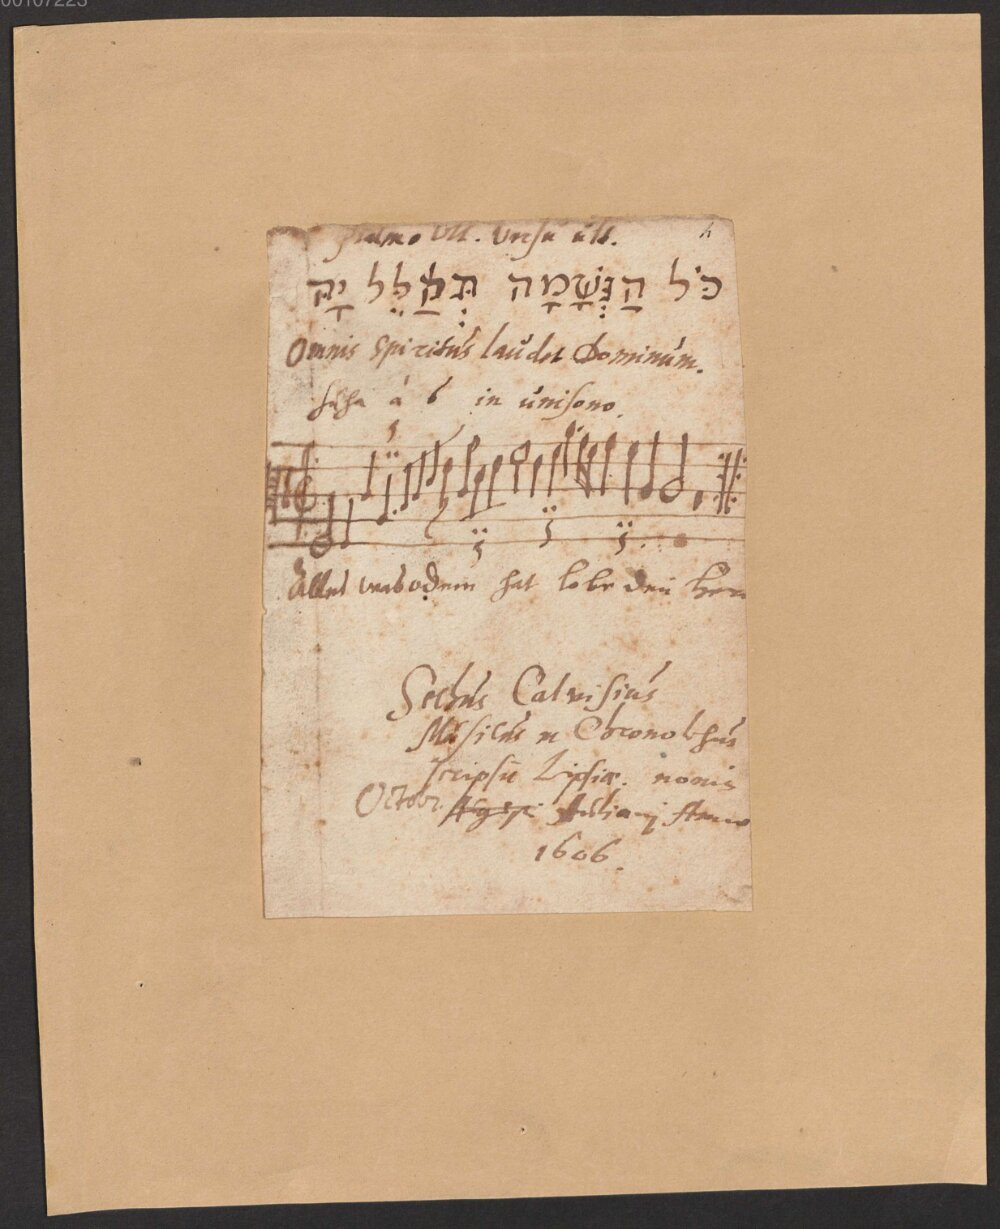 00107223
psalmo ult. Versu ult.
כֹּל הַנְּשָׁמָה תְּהַלֵּל יָהּ
Omnis spiritus laudet Dominum.
fuga á 6 in unisono.
Alles was odem hat lobe den Herrn
Sethus Calvisius
Musicus et Chronologus
scripsit Lipsiæ nonis
Octobr. Anno
1606.